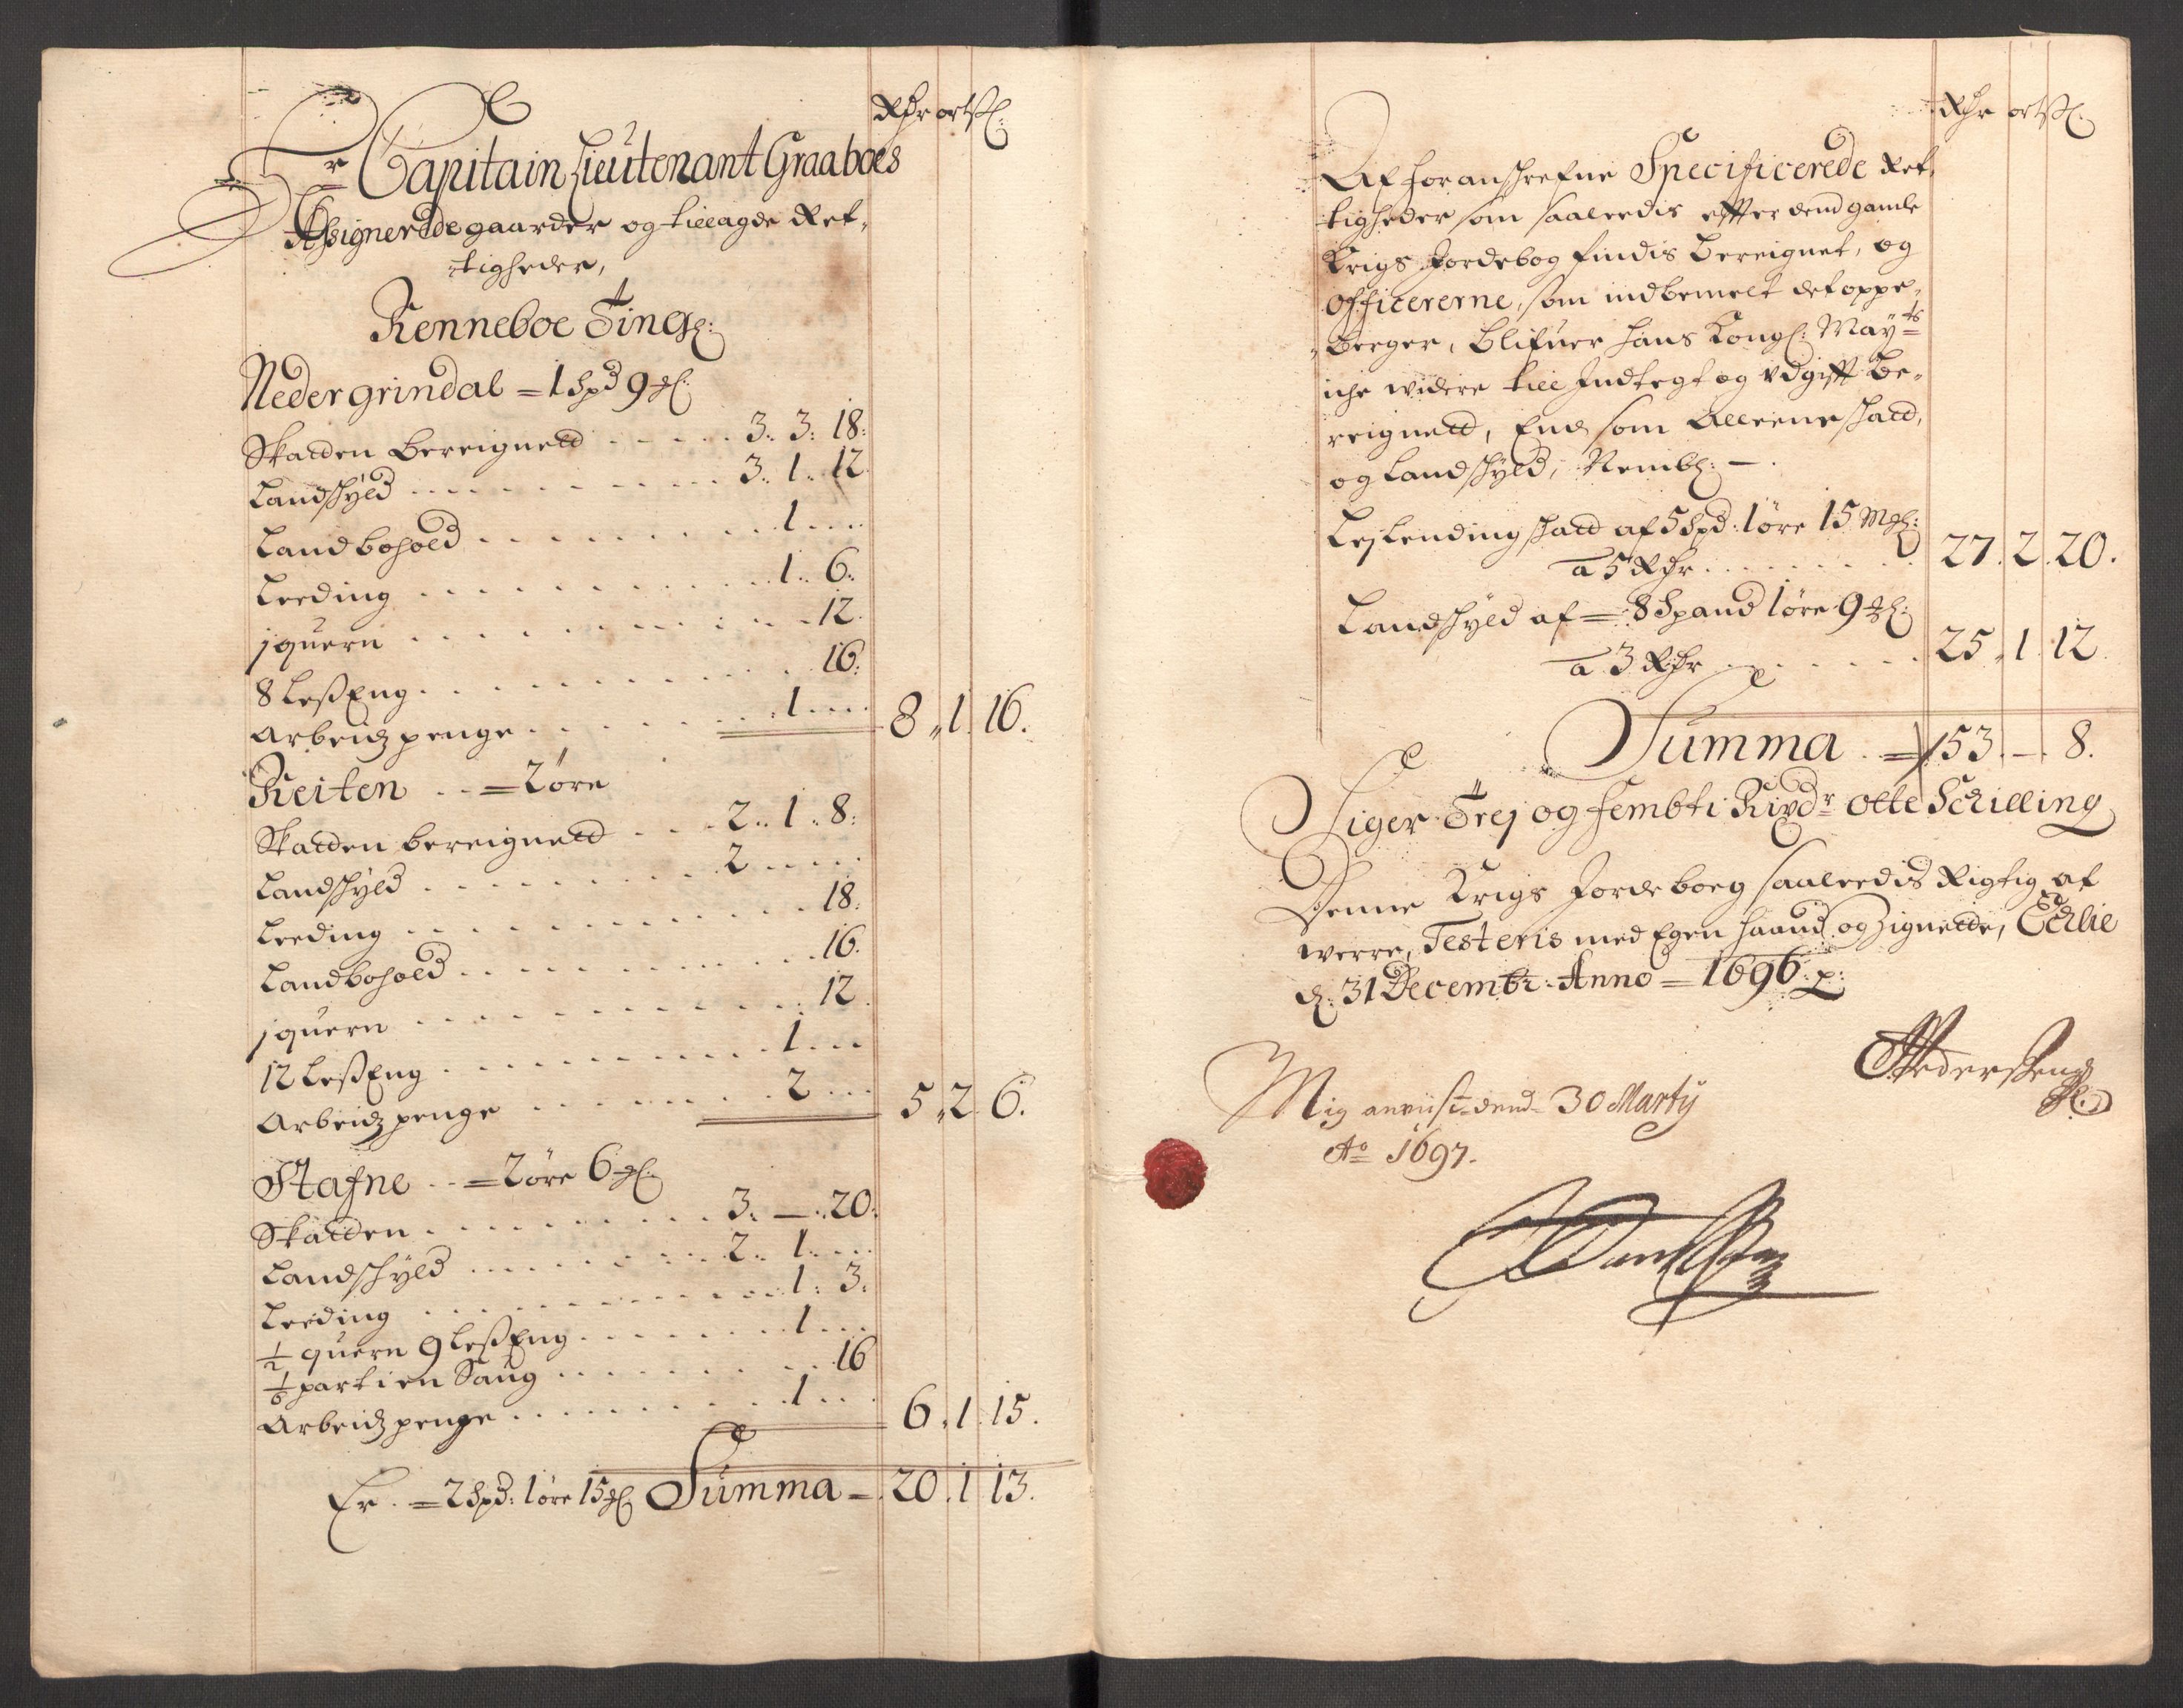 Rdr ort ß:
Hr Capitain Lieutenant Graaboes
Assignerede gaarder og tillagde Ret-
tigheder,
Renneboe Tingl:
Nedergrindal = 1 Spd 9 mkl:
Skatten bereignett . . . . . 3. 3. 18.
Landschyld . . . . . 3. 1. 12.
Landbohold . . . . . 1 . . .
Leeding . . . . . 1. 6.
j quern . . . . . 12.
8 Less Eng . . . . . 16.
Arbeidz penge . . . . . 1 . . . 8. 1. 16.
Reiten . . = 2 øre
Skatten bereignett . . . 2. 1. 8.
Landschyld . . . . . 2 . . . .
Leeding . . . . . 18.
Landbohold . . . . . 16.
j quern . . . . . 12.
12 Less Eng . . . . . 1 . . .
Arbeidz penge . . . . . 2 . . . 5. 2. 6.
Stafne . . = 2 øre 6 mkl:
Skatten . . . . . 3. — 20.
Landschyld . . . . . 2. 1. . .
Leeding . . . . . 1. 3.
½ quern 9 Less Eng . . . . . 1 . . .
1/6 part i en Saug . . . . . 16
Arbeidz penge . . . . . 1 . . . 6. 1. 15.
Er. = 2 Spd: 1 øre 15 mkl Summa = 20. 1 13.
Rdr ort ß:
Af foranschrefne Specificerede Ret-
tigheder som saaleedis effter dend gamle
Krigs Jordebog findis bereignet, og
Officererne, som indbemelt det oppe-
berger, blifuer hans Kongl: Mayts
iche widere till Indtegt og Vdgifft be-
reignett, End som Alleene schatt,
og Landschyld, Nembl: —
Lejlending schatt af 5 Spd. 1 øre 15 Mkl:
a 5 Rdr . . . . . 27. 2. 20.
Landschyld af = 8 Spand 1 øre 9 mkl:
a 3 Rdr . . . . . 25. 1. 12.
Summa = 53. — 8.
Siger Trej og fembti Rixdr otte Schilling
Denne Krigs Jordeboeg saaleedis Rigtig at
werre, Testeris med Egen haand og Zignette, Echlie
d: 31 Decembr: Anno = 1696 p:
Pedersen
Mig anviist dend 30 Martij
Ao 1697.